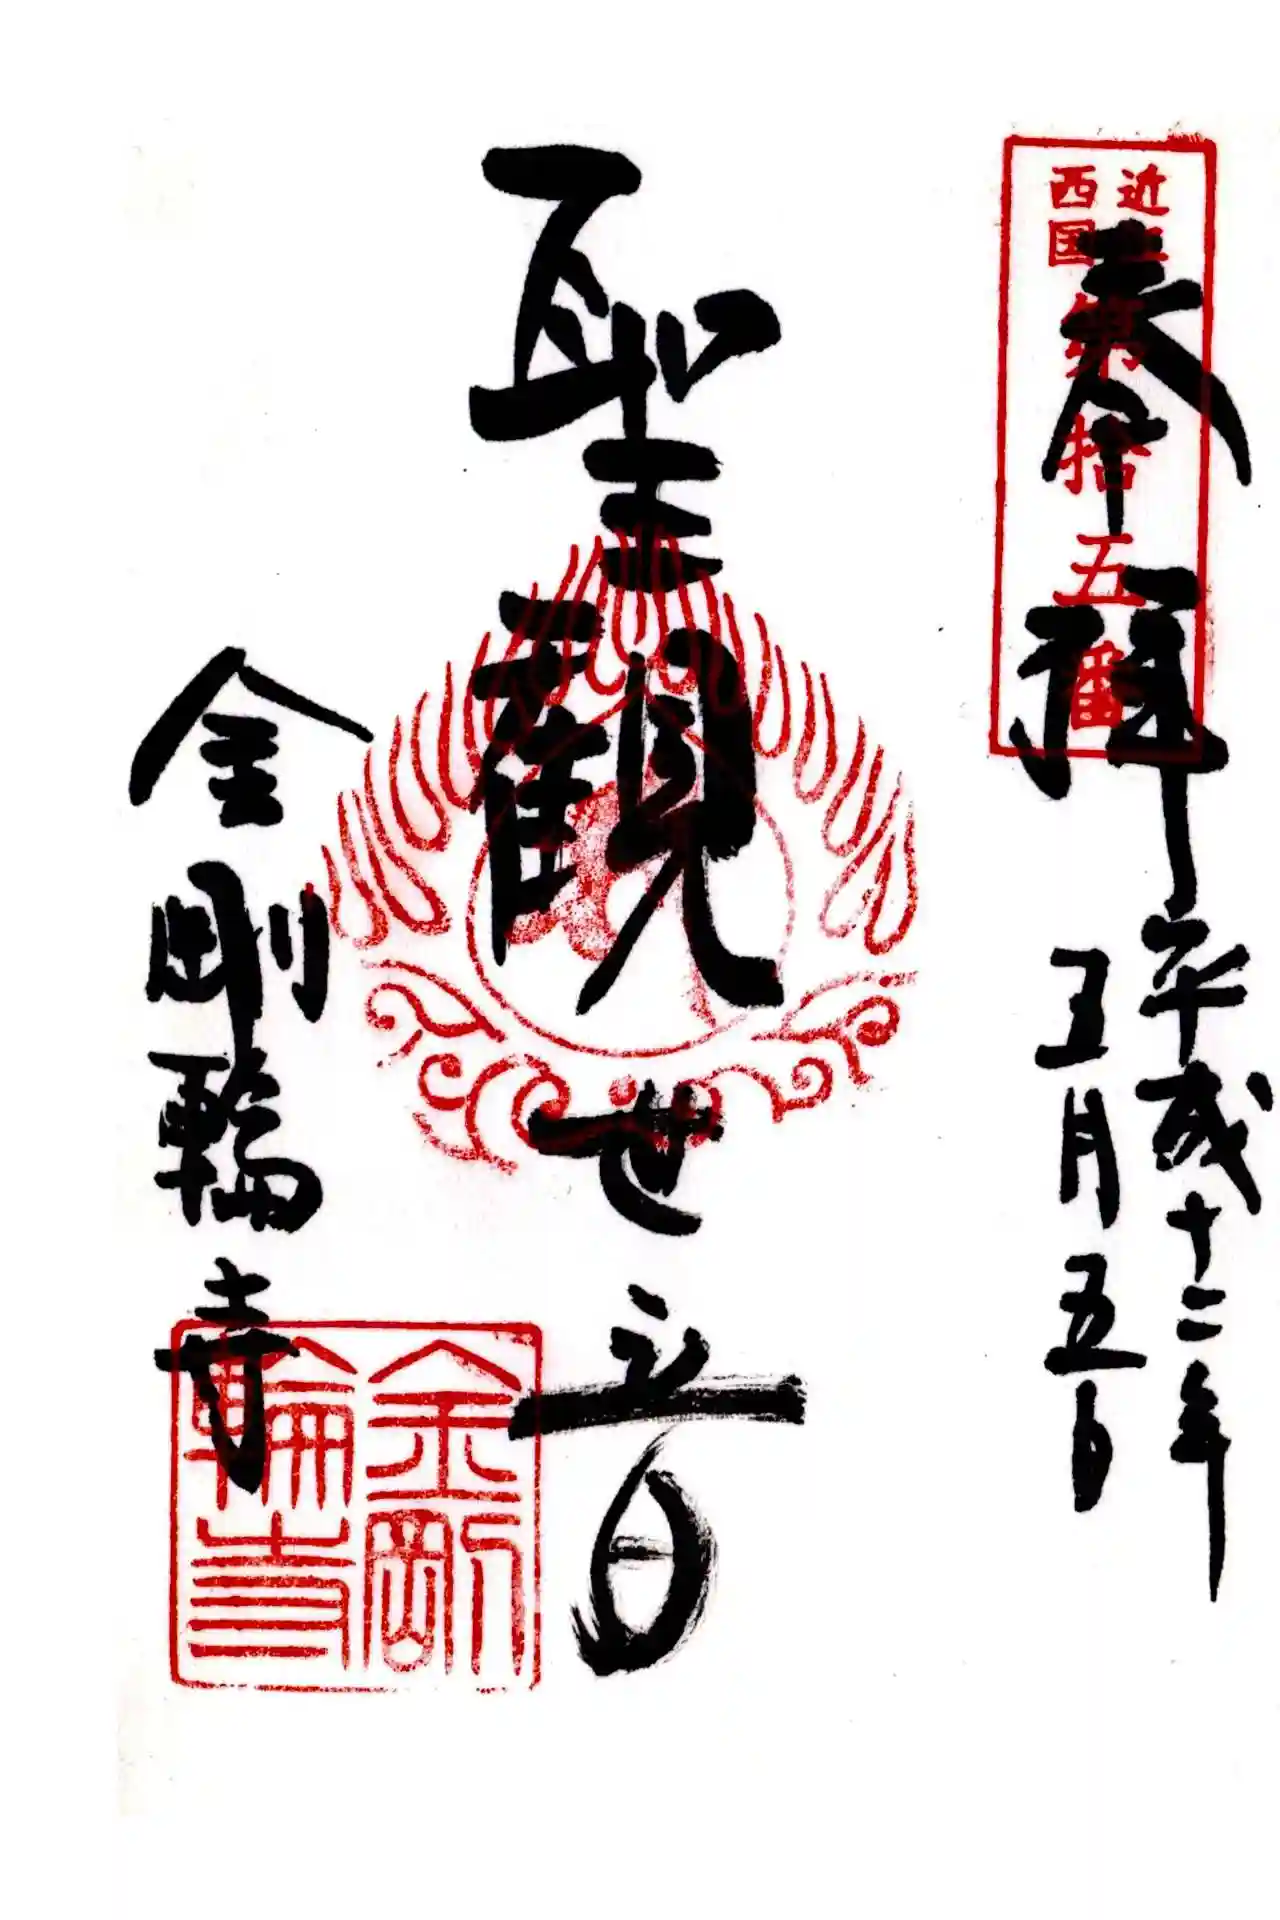 奉拝
近江
西国
第拾五番
平成十二年
五月五日
聖観世音
金剛輪寺
金剛
輪寺